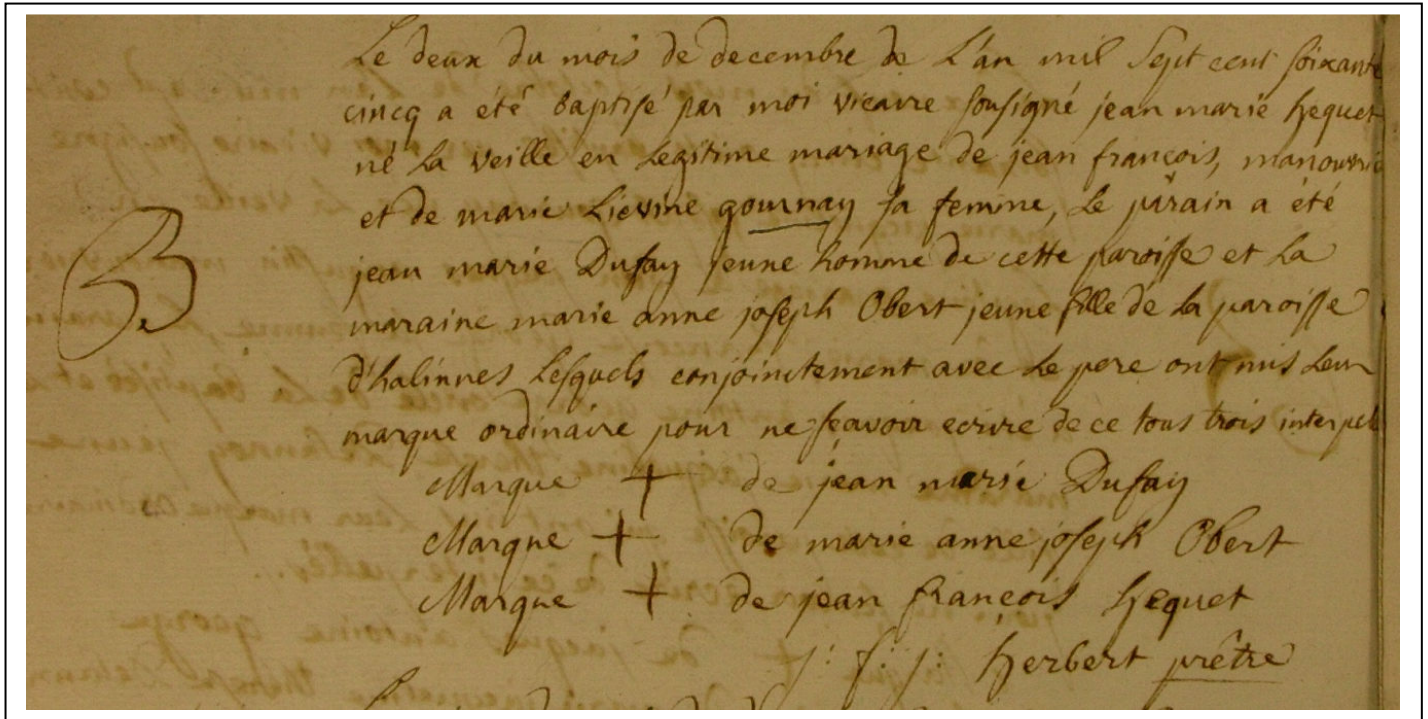 Le deux du mois de decembre de L'an mil Sept cent soixante
cincq a été baptisé par moi vicaire sousigné jean marie hequet
né la veille en legitime mariage de jean françois, manouvrie
et de marie Lievine gournay sa femme, Le parain a été
jean marie Dufay jeune homme de cette paroisse et la
maraine marie anne joseph Obert jeune fille de la paroisse
d'halinnes Lesquels conjointement avec le pere ont mis leur
marque ordinaire pour ne sçavoir ecrire de ce tous trois interpel
Marque + de jean marie Dufay
Marque + de marie anne joseph Obert
Marque + de jean françois hequet
j: f: j: herbert prêtre